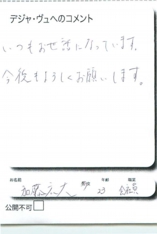 デジャ・ヴュへのコメント
いつもお世話になっています。
今後もよろしくお願いします。
お名前 年齢 職業
23 会社員
公開不可